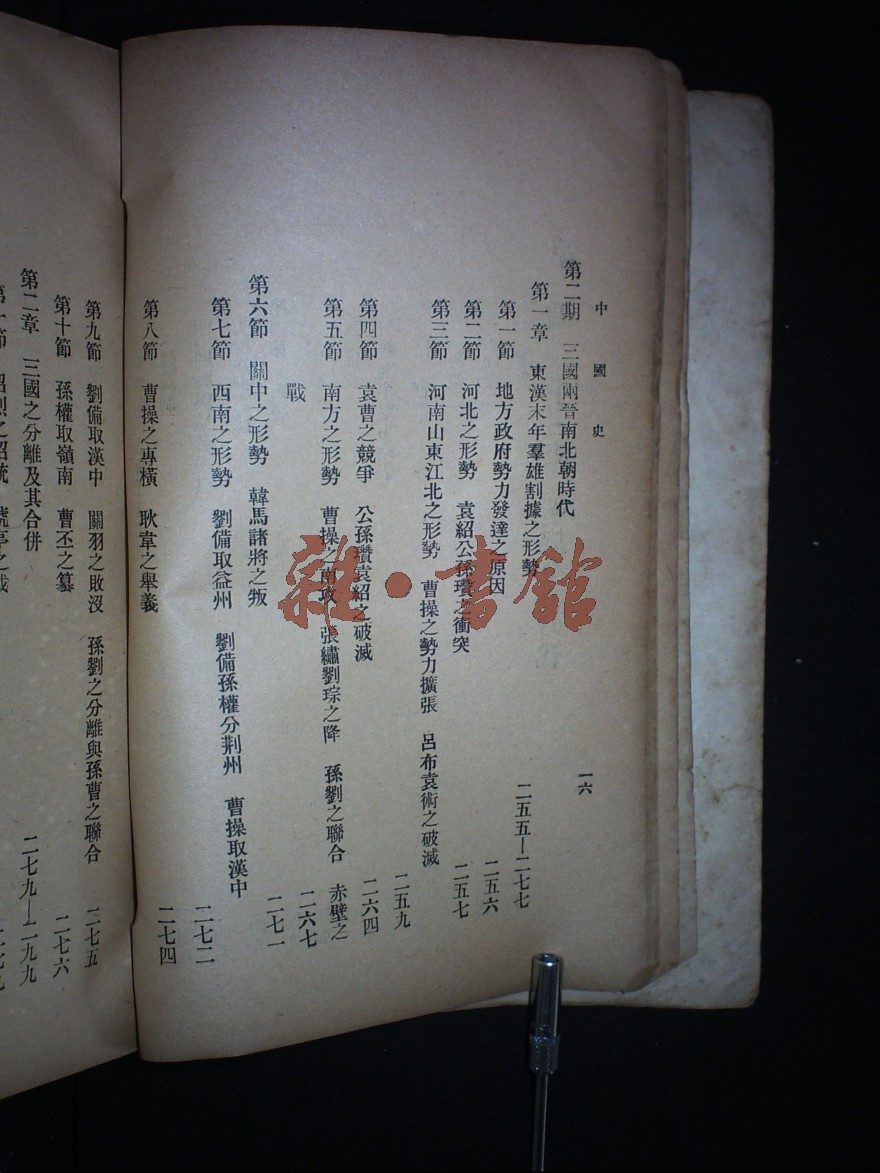 中國史
一六
第二期 三國兩晉南北朝時代
第一章 東漢末年羣雄割據之形勢 二五五—二七七
第一節 地方政府勢力發達之原因 二五六
第二節 河北之形勢 袁紹公孫瓚之衝突 二五七
第三節 河南山東江北之形勢 曹操之勢力擴張 呂布袁術之破滅 二五九
第四節 袁曹之競爭 公孫瓚袁紹之破滅 二六四
第五節 南方之形勢 曹操之南攻 張繡劉琮之降 孫劉之聯合 赤壁之
戰 二六七
第六節 關中之形勢 韓馬諸將之叛 二七一
第七節 西南之形勢 劉備取益州 劉備孫權分荆州 曹操取漢中
二七二
第八節 曹操之專橫 耿韋之舉義 二七四
第九節 劉備取漢中 關羽之敗沒 孫劉之分離與孫曹之聯合 二七五
第十節 孫權取嶺南 曹丕之篡 二七六
第二章 三國之分離及其合併 二七九—二九九
雜·書館